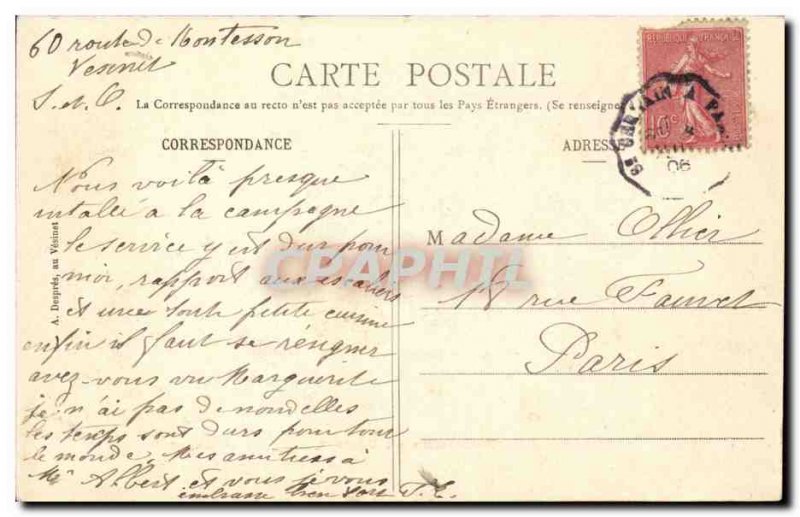 60 route de Montesson
Vesinet
S. et O.
CARTE POSTALE
La Correspondance au recto n'est pas acceptée par tous les Pays Étrangers. (Se renseigne
CORRESPONDANCE
ADRESSE
REPUBLIQUE FRANÇAISE
10c
ST GERMAIN A PARIS
06
Nous voilà presque
intalée à la campagne
le service y est dur pour
moi, rapport aux escaliers
et une toute petite cuisine
enfin il faut se résigner
avez-vous vu Marguerite
je n'ai pas de nondelles
les temps sont durs pour tout
le monde. Mes amitiess à
Mr Albert et vous je vous
embrasse bien fort
Madame Ollier
18 rue Fauvet
Paris
A. Després, au Vésinet
CPAPHIL